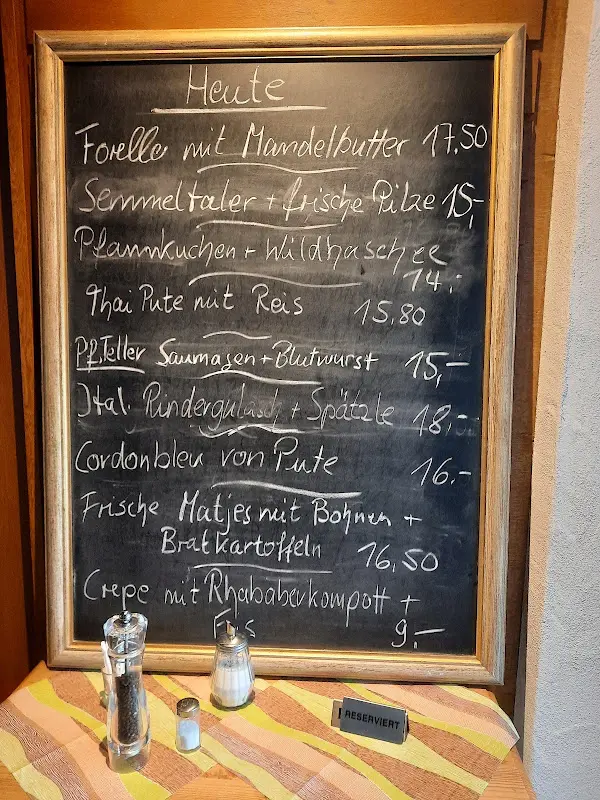 Heute
Forelle mit Mandelbutter 17.50
Semmeltaler + frische Pilze 15,-
Pfannkuchen + Wildhaschee
14.-
Thai Pute mit Reis 15.80
Pf.Teller Saumagen + Blutwurst 15,-
Ital. Rindergulasch + Spätzle 18,-
Cordonbleu von Pute 16.-
Frische Matjes mit Bohnen +
Bratkartoffeln 16,50
Crepe mit Rhababerkompott +
9,-
RESERVIERT